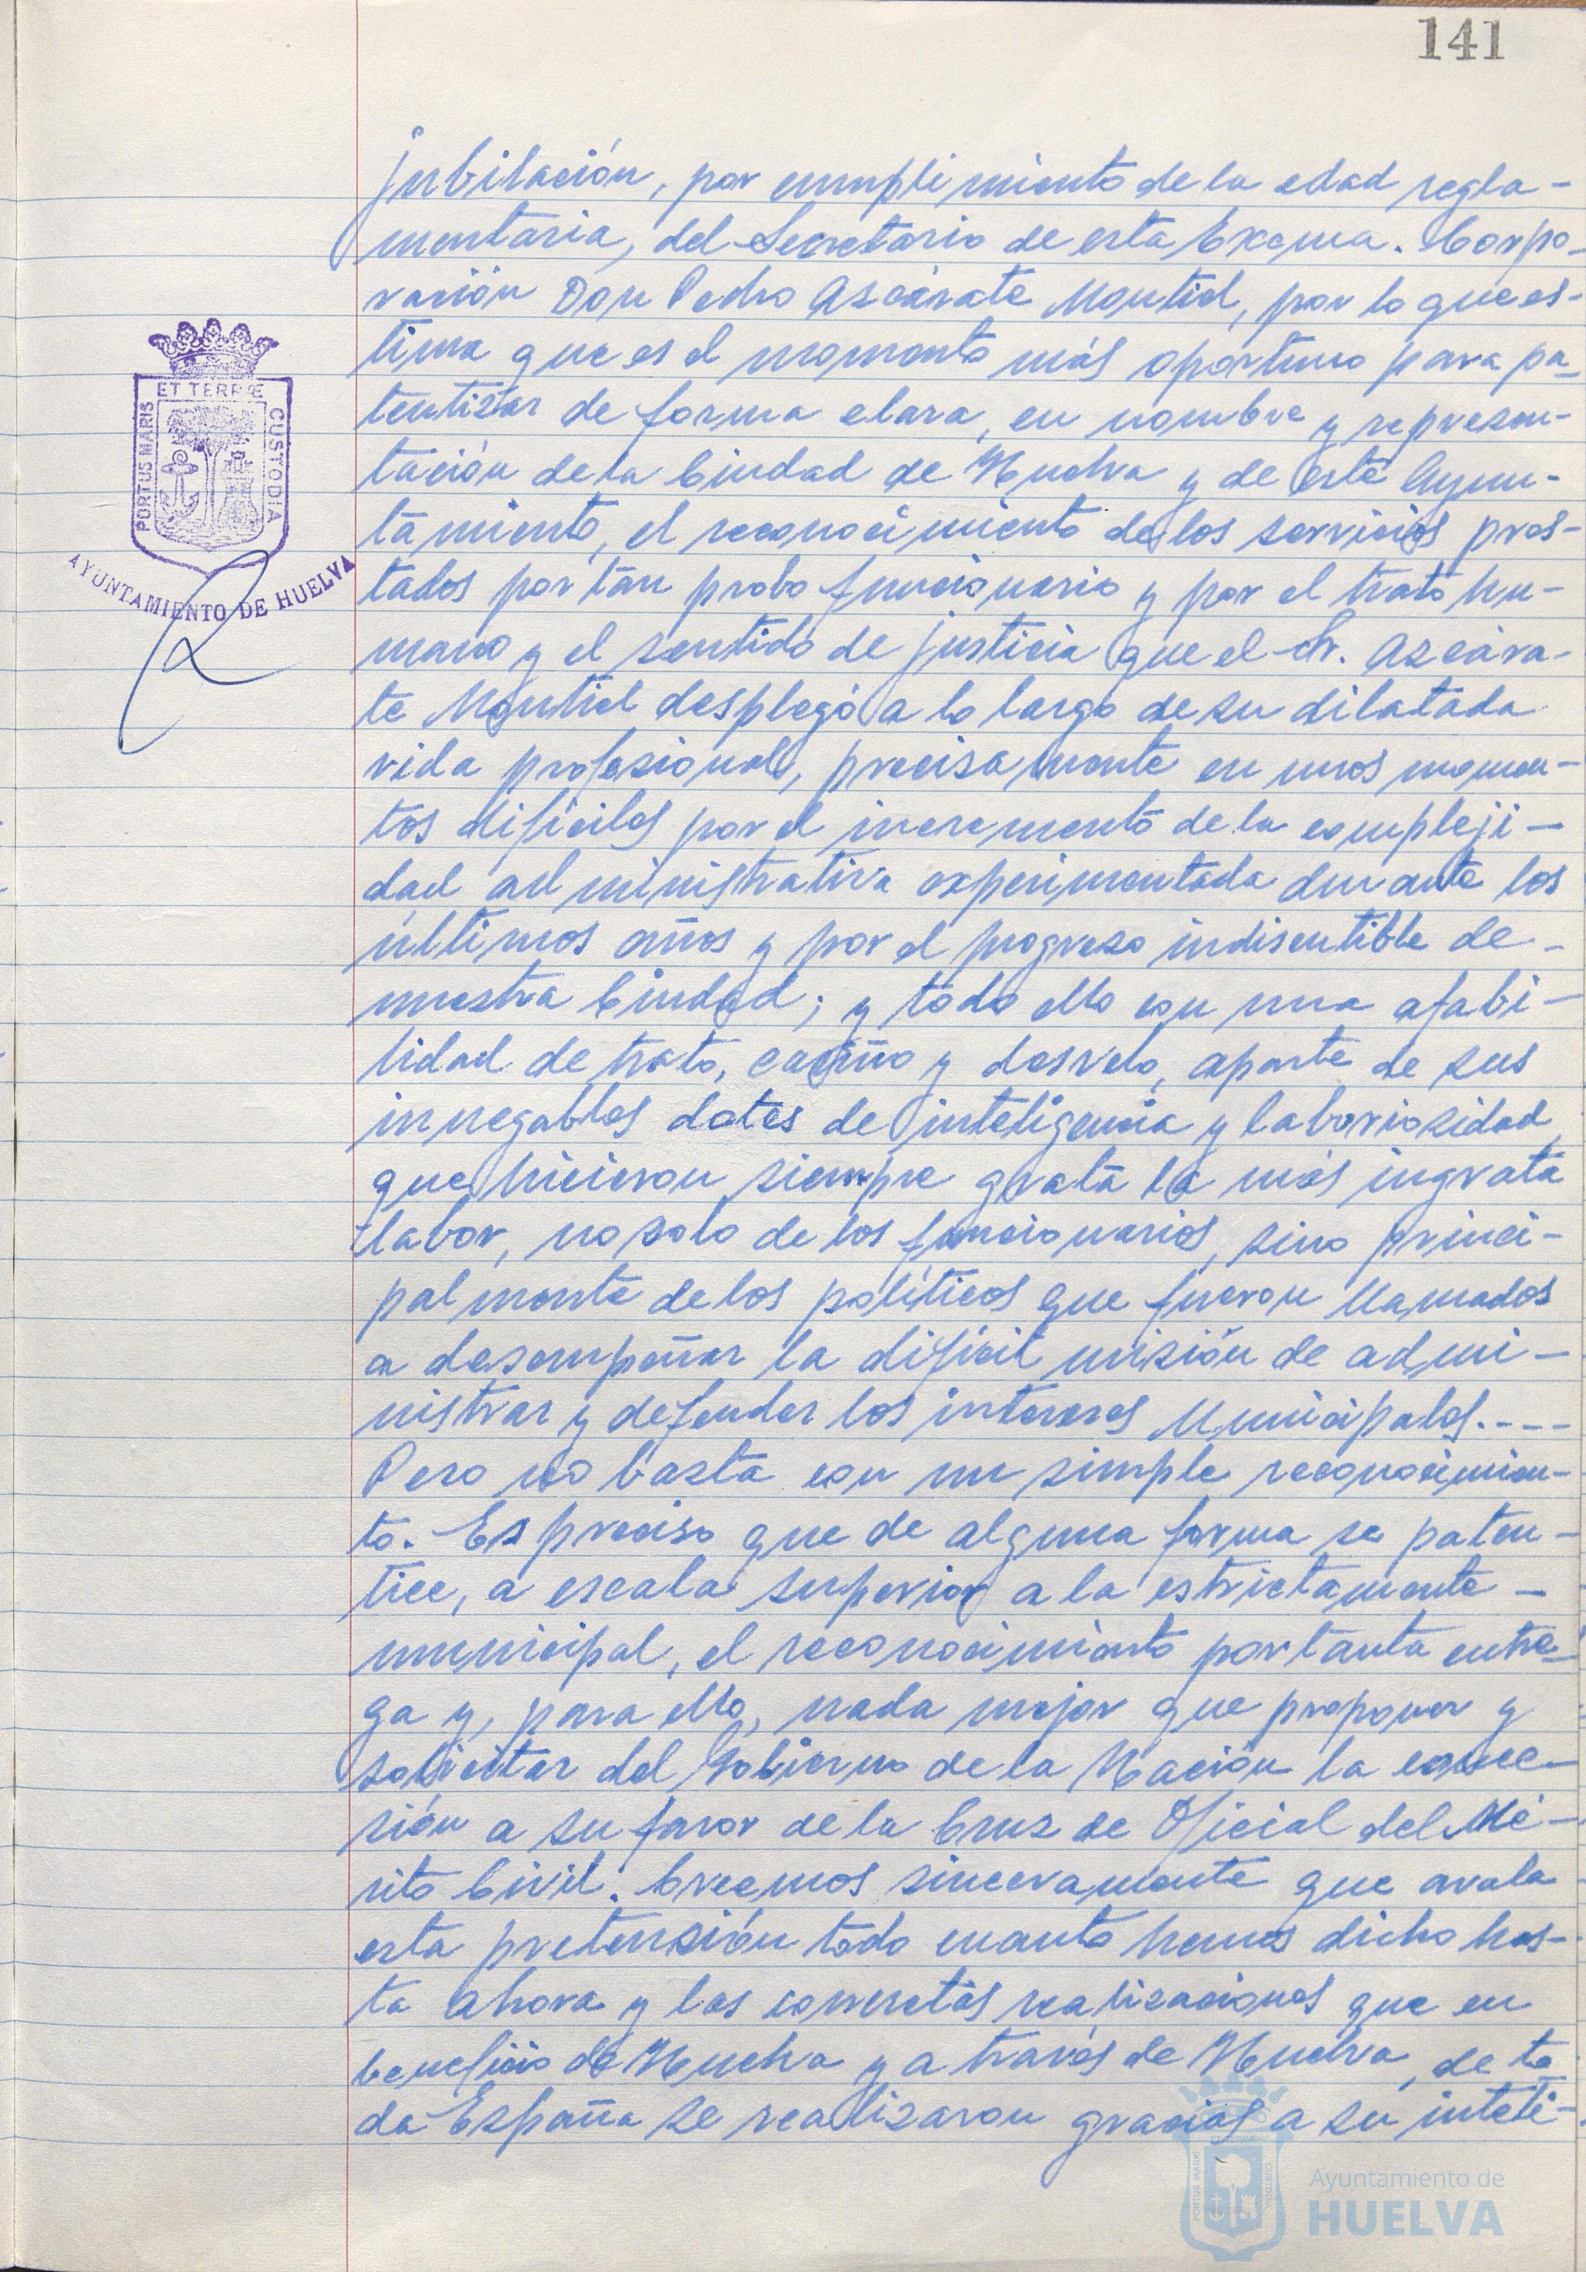 141
jubilación, por cumplimiento de la edad regla-
mentaria, del Secretario de esta Excma. Corpo-
ración Don Pedro Ascárate Montiel, por lo que es-
tima que es el momento más oportuno para pa-
tentizar de forma clara, en nombre y represen-
tación de la Ciudad de Huelva y de este Ayun-
tamiento, el reconocimiento de los servicios pres-
tados por tan probo funcionario y por el trato hu-
mano y el sentido de justicia que el Sr. Azcára-
te Montiel desplegó a lo largo de su dilatada
vida profesional, precisamente en unos momen-
tos difíciles por el incremento de la compleji-
dad administrativa experimentada durante los
últimos años y por el progreso indiscutible de-
nuestra Ciudad; y todo ello con una afabi-
lidad de trato, cariño y desvelo, aparte de sus
innegables dotes de inteligencia y laboriosidad,
que hicieron siempre grata la más ingrata
labor, no solo de los funcionarios, sino princi-
palmente de los políticos que fueron llamados
a desempeñar la difícil misión de admi-
nistrar y defender los intereses Municipales.----
Pero no basta con un simple reconocimien-
to. Es preciso que de alguna forma se paten-
tice, a escala superior a la estrictamente -
municipal, el reconocimiento por tanta entre-
ga y, para ello, nada mejor que proponer y
solicitar del Gobierno de la Nación la conce-
sión a su favor de la Cruz de Oficial del Mé-
rito Civil. Creemos sinceramente que avala
esta pretensión todo cuanto hemos dicho has-
ta ahora y las concretas realizaciones que en
beneficio de Huelva y a través de Huelva, de to
da España se realizaron gracias a su inteli-
PORTUS MARIS
ET TERRÆ
CUSTODIA
AYUNTAMIENTO DE HUELVA
Ayuntamiento de
HUELVA